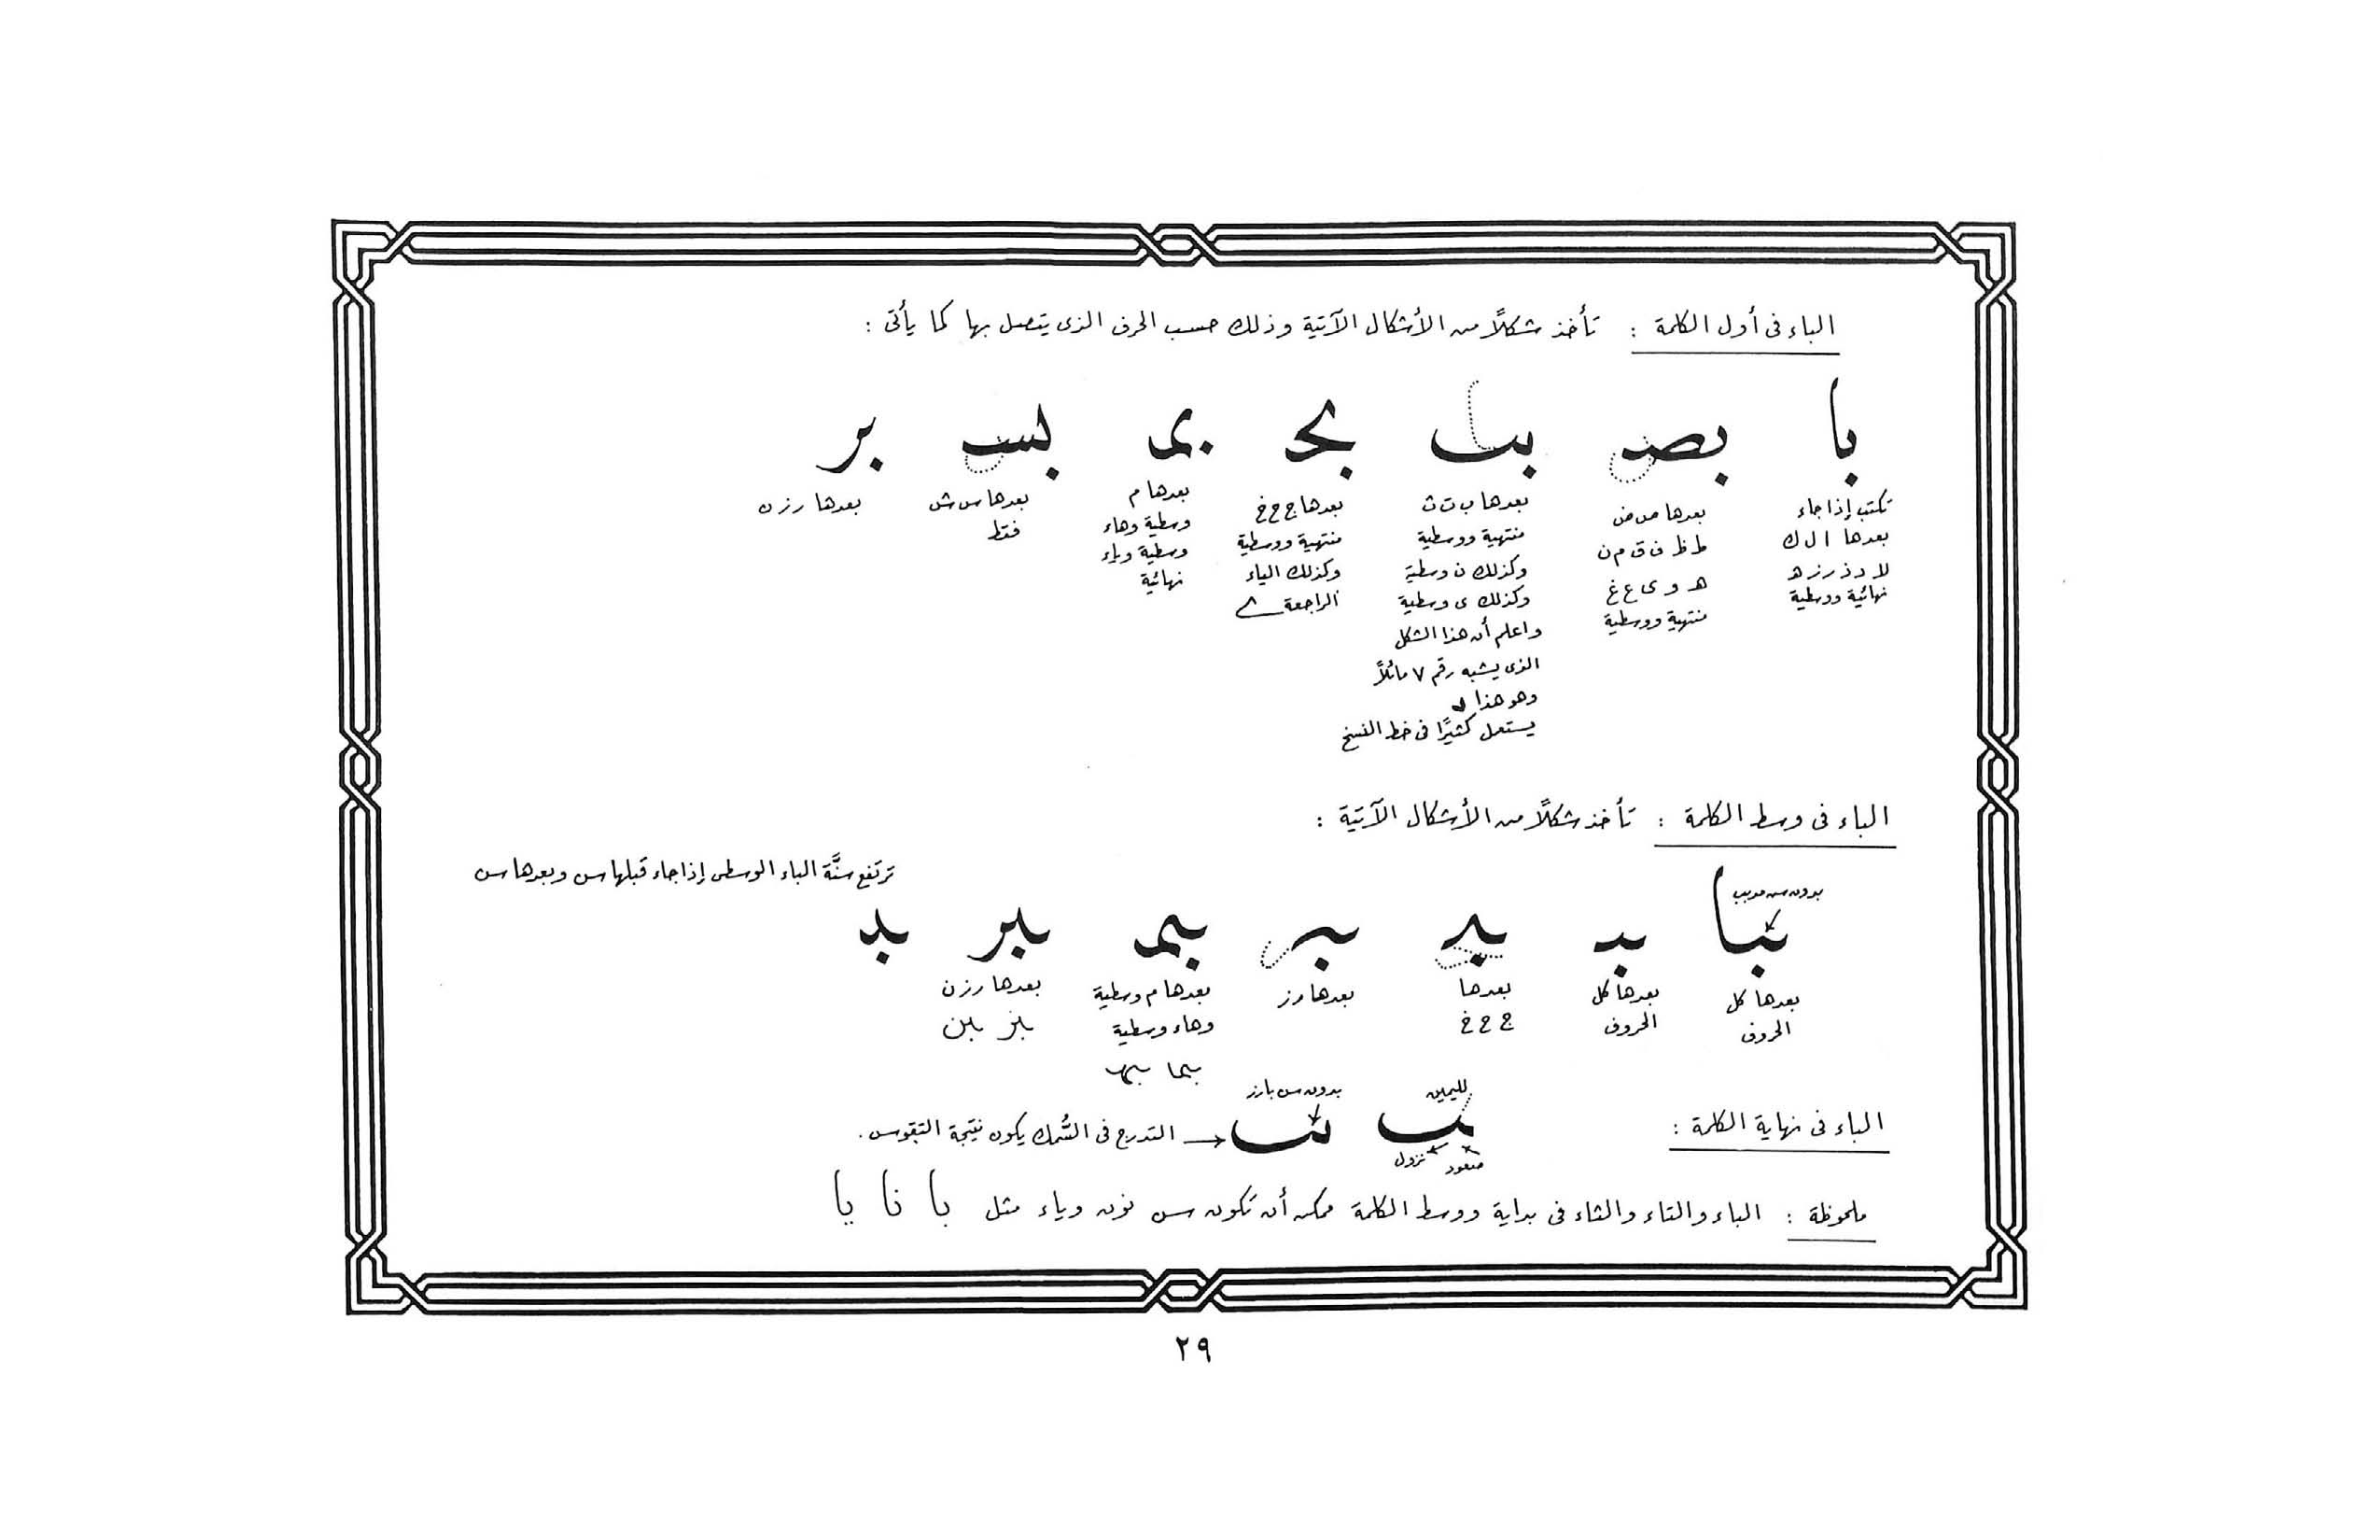 الباء فى أول الكلمة : تأخذ شكلاً من الأشكال الآتية وذلك حسب الحرف الذى يتصل بها كما يأتى :
با بصـ ببـ بحـ بمـ بسـ بر
تكتب إذا جاء
بعدها ا ل ك
لا د ذ ر ز هـ
نهائية ووسطية
بعدها ص ض
ط ظ ف ق م ن
هـ و ى ع غ
منتهية ووسطية
بعدها ب ت ث
منتهية ووسطية
وكذلك ن وسطية
وكذلك ى وسطية
واعلم أن هذا الشكل
الذى يشبه رقم ٧ مائلاً
وهو هذا
يستعمل كثيرًا فى خط النسخ
بعدها ج ح خ
منتهية ووسطية
وكذلك الياء
الراجعة ے
بعدها م
وسطية وهاء
وسطية وياء
نهائية
بعدها س ش
فقط
بعدها ر ز ن
الباء فى وسط الكلمة : تأخذ شكلاً من الأشكال الآتية :
ترتفع سنَّة الباء الوسطى إذا جاء قبلها س وبعدها س
بدون سن مدبب
بعدها كل
الحروف
بعدها كل
الحروف
بعدها
ج ح خ
بعدها ر ز
بعدها م وسطية
وهاء وسطية
بعدها ر ز ن
الباء فى نهاية الكلمة :
لليمين
صعود نزول
بدون سن بارز
التدرج فى السُّمك يكون نتيجة التقوس .
ملحوظة : الباء والتاء والثاء فى بداية ووسط الكلمة ممكن أن تكون سن نون وياء مثل با نا يا
٢٩